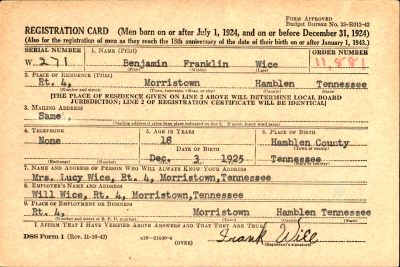 Form Approved
Budget Bureau No. 33-R012-42
REGISTRATION CARD (Men born on or after July 1, 1924, and on or before December 31, 1924)
(Also for the registration of men as they reach the 18th anniversary of the date of their birth on or after January 1, 1943.)
SERIAL NUMBER 1. NAME (Print) ORDER NUMBER
W 271 Benjamin Franklin Wice 11,881
(First) (Middle) (Last)
2. PLACE OF RESIDENCE (Print)
Rt. 4, Morristown Hamblen Tennessee
(Number and street) (Town, township, village, or city) (County) (State)
[THE PLACE OF RESIDENCE GIVEN ON LINE 2 ABOVE WILL DETERMINE LOCAL BOARD
JURISDICTION; LINE 2 OF REGISTRATION CERTIFICATE WILL BE IDENTICAL]
3. MAILING ADDRESS
Same
[Mailing address if other than place indicated on line 2. If same, insert word same]
4. TELEPHONE 5. AGE IN YEARS 6. PLACE OF BIRTH
None 18 Hamblen County
DATE OF BIRTH (Town or county)
Dec. 3 1925 Tennessee
(Exchange) (Number) (Mo.) (Day) (Yr.) (State or country)
7. NAME AND ADDRESS OF PERSON WHO WILL ALWAYS KNOW YOUR ADDRESS
Mrs. Lucy Wice, Rt. 4, Morristown, Tennessee
8. EMPLOYER'S NAME AND ADDRESS
Will Wice, Rt. 4, Morristown, Tennessee
9. PLACE OF EMPLOYMENT OR BUSINESS
Rt. 4, Morristown Hamblen Tennessee
(Number and street or R. F. D. number) (Town) (County) (State)
I AFFIRM THAT I HAVE VERIFIED ABOVE ANSWERS AND THAT THEY ARE TRUE.
DSS Form 1 (Rev. 11-16-42) (OVER) Frank Will
(Registrant's signature)